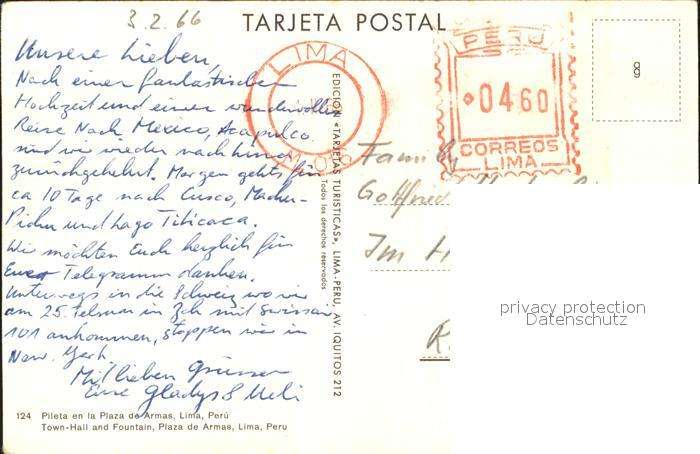 3.2.66
TARJETA POSTAL
Unsere Lieben,
Nach einer fantastischen
Hochzeit und einer wundervollen
Reise nach Mexico, Acapulco
sind wir wieder nach Lima
zurückgekehrt. Morgen geht's für
ca 10 Tage nach Cusco, Machu-
Pichu und Lago Titicaca.
Wir möchten Euch herzlich für
Euer Telegramm danken.
Unterwegs in die Schweiz wo wir
am 25. Februar in Zch mit Swissair
101 ankommen, stoppen wir in
New. York
Mit lieben Grüssen
Eure Gladys & Ueli
124 Pileta en la Plaza de Armas, Lima, Perú
Town-Hall and Fountain, Plaza de Armas, Lima, Peru
EDICION «TARJETAS TURISTICAS», LIMA-PERU, AV. IQUITOS 212
Todos los derechos reservados
LIMA
PERU
0460
CORREOS
LIMA
Family
Gottfried
Im H
K
privacy protection
Datenschutz